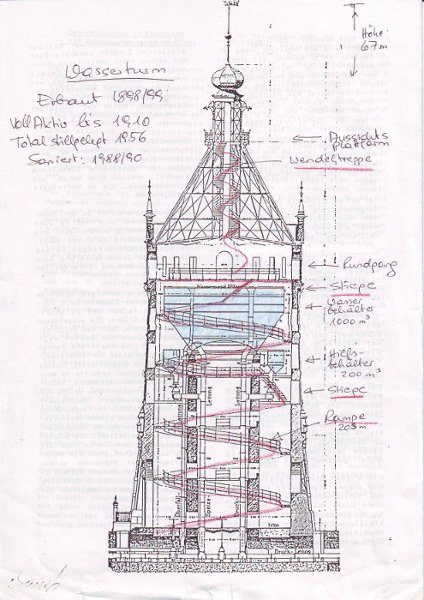 Höhe:
67 m
Wasserturm
Erbaut 1898/99
Voll Aktiv bis 1910
Total stillgelegt 1956
Saniert: 1988/90
Aussichts
plattform
Wendeltreppe
Rundgang
Stiege
Wasser
behälter
1000 m³
Hilfs-
behälter
200 m³
Stiege
Rampe
203 m
Druckleitung